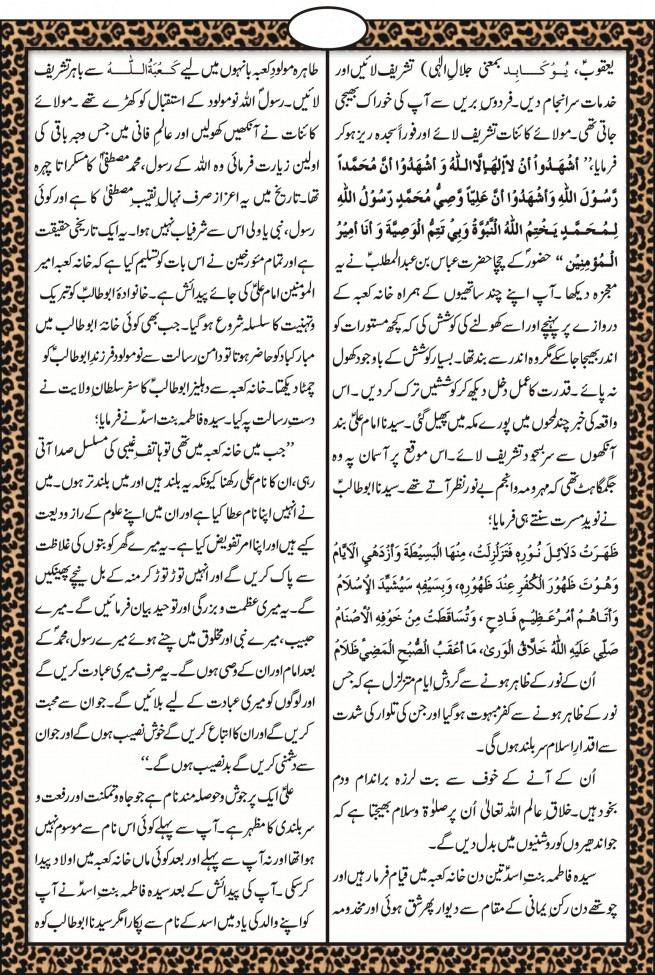 یعقوبؑ، یُوکَابِد بمعنی جلالِ الٰہی) تشریف لائیں اور
خدمات سرانجام دیں۔ فردوسِ بریں سے آپ کی خوراک بھیجی
جاتی تھی۔ مولائے کائنات تشریف لائے اور فوراً سجدہ ریز ہو کر
فرمایا؛ ’’اَشْهَدُواْ اَنْ لَّا اِلٰهَ اِلَّا اللّٰهُ وَ اَشْهَدُوْا اَنَّ مُحَمَّداً
رَّسُوْلَ اللّٰهِ وَ اَشْهَدُوْا اَنَّ عَلِیًّا وَّصِیُّ مُحَمَّدٍ رَسُوْلُ اللّٰهِ
لِمُحَمَّدٍ یَخْتِمُ اللّٰهُ النُّبُوَّةُ وَ بِیْ تَتِمُّ الْوَصِیَّةَ وَ اَنَا اَمِیْرُ
الْمُؤْمِنِیْن‘‘ حضورؐ کے چچا حضرت عباس بن عبدالمطلبؑ نے یہ
معجزہ دیکھا۔ آپ اپنے چند ساتھیوں کے ہمراہ خانہ کعبہ کے
دروازے پر پہنچے اور اسے کھولنے کی کوشش کی کہ کچھ مستورات کو
اندر بھیجا جا سکے مگر وہ اندر سے بند تھا۔ بسیار کوشش کے باوجود کھول
نہ پائے۔ قدرت کا عمل دخل دیکھ کر کوششیں ترک کر دیں۔ اس
واقعہ کی خبر چند لمحوں میں پورے مکہ میں پھیل گئی۔ سیدنا امام علیؑ بند
آنکھوں سے سربسجود تشریف لائے۔ اس موقع پر آسمان پہ وہ
جگمگاہٹ تھی کہ مہر و مہ و انجم بے نور نظر آتے تھے۔ سیدنا ابوطالبؑ
نے نویدِ مسرت سنتے ہی فرمایا؛
ظَهَرَتْ دَلَائِلُ نُوْرِہٖ فَتَزَلْزَلَتْ، مِنْهَا الْبَسِیْطَةُ وَ اَزْدَهِی الْاَیَّامُ
وَ هُوَتْ ظَهُوْرَ الْکُفْرِ عِنْدَ ظَهُوْرِہٖ، وَ بِسَیْفِهٖ سَیُشَیِّدُ الْاِسْلَامُ
وَ اَتَاهُمْ اَمْرٌ عَظِیْمٌ فَادِحٌ، وَ تُسَاقَطَتْ مِنْ خَوْفِهِ الْاَصْنَامُ
صَلّٰی عَلَیْهِ اللّٰهُ خَلَّاقُ الْوَرٰی، مَا اَعْقَبُ الصُّبْحَ الْمَضِیْ ظَلَامُ
اُن کے نور کے ظاہر ہونے سے گردشِ ایام متزلزل ہے کہ جس
نور کے ظاہر ہونے سے کفر مبہوت ہو گیا اور جن کی تلوار کی شدت
سے اقدارِ اسلام سربلند ہوں گی۔
اُن کے آنے کے خوف سے بت لرزہ براندام و دم
بخود ہیں۔ خلاقِ عالم اللہ تعالیٰ اُن پر صلوٰۃ و سلام بھیجتا ہے کہ
جو اندھیروں کو روشنیوں میں بدل دیں گے۔
سیدہ فاطمہ بنتِ اسدؑ تین دن خانہ کعبہ میں قیام فرما رہیں اور
چوتھے دن رکنِ یمانی کے مقام سے دیوار پھر شق ہوئی اور مخدومہ
طاہرہ مولودِ کعبہ بانہوں میں لیے کَعْبَۃُ اللّٰہ سے باہر تشریف
لائیں۔ رسولؐ اللہ نومولود کے استقبال کو کھڑے تھے۔ مولائے
کائنات نے آنکھیں کھولیں اور عالمِ فانی میں جس وجہِ باقی کی
اولین زیارت فرمائی وہ اللہ کے رسول، محمد مصطفیٰؐ کا مسکراتا چہرہ
تھا۔ تاریخ میں یہ اعزاز صرف نہال نقیبِ مصطفیٰؐ کا ہے اور کوئی
رسول، نبی یا ولی اس سے شرفیاب نہیں ہوا۔ یہ ایک تاریخی حقیقت
ہے اور تمام مؤرخین نے اس بات کو تسلیم کیا ہے کہ خانہ کعبہ امیر
المؤمنین امام علیؑ کی جائے پیدائش ہے۔ خانوادۂ ابوطالبؑ کو تبریک
و تہنیت کا سلسلہ شروع ہو گیا۔ جب بھی کوئی خانۂ ابوطالب میں
مبارکباد کو حاضر ہوتا تو دامنِ رسالت سے نومولود فرزندِ ابوطالبؑ کو
چمٹا دیکھتا۔ خانہ کعبہ سے دہلیزِ ابوطالبؑ کا سفر سلطانِ ولایت نے
دستِ رسالت پہ کیا۔ سیدہ فاطمہ بنت اسدؑ نے فرمایا؛
’’جب میں خانہ کعبہ میں تھی تو ہاتفِ غیبی کی مسلسل صدا آتی
رہی، ان کا نام علی رکھنا کیونکہ یہ بلند ہیں اور میں بلند تر ہوں۔ میں
نے انہیں اپنا نام عطا کیا ہے اور ان میں اپنے علوم کے راز ودیعت
کیے ہیں اور اپنا امر تفویض کیا ہے۔ یہ میرے گھر کو بتوں کی غلاظت
سے پاک کریں گے اور انہیں توڑ توڑ کر منہ کے بل نیچے پھینکیں
گے۔ یہ میری عظمت و بزرگی اور توحید بیان فرمائیں گے۔ میرے
حبیب، میرے نبی اور مخلوق میں چنے ہوئے میرے رسول، محمدؐ کے
بعد امام اور ان کے وصی ہوں گے۔ یہ صرف میری عبادت کریں گے
اور لوگوں کو میری عبادت کے لیے بلائیں گے۔ جو ان سے محبت
کریں گے اور ان کا اتباع کریں گے خوش نصیب ہوں گے اور جو ان
سے دشمنی کریں گے بدنصیب ہوں گے۔‘‘
علیؑ ایک پُرجوش و حوصلہ مند نام ہے جو جاہ و تمکنت اور رفعت و
سربلندی کا مظہر ہے۔ آپ سے پہلے کوئی اس نام سے موسوم نہیں
ہوا تھا اور نہ آپ سے پہلے اور بعد کوئی ماں خانہ کعبہ میں اولاد پیدا
کر سکی۔ آپ کی پیدائش کے بعد سیدہ فاطمہ بنتِ اسدؑ نے آپ
کو اپنے والد کی یاد میں اسد کے نام سے پکارا مگر سیدنا ابوطالب کوہ